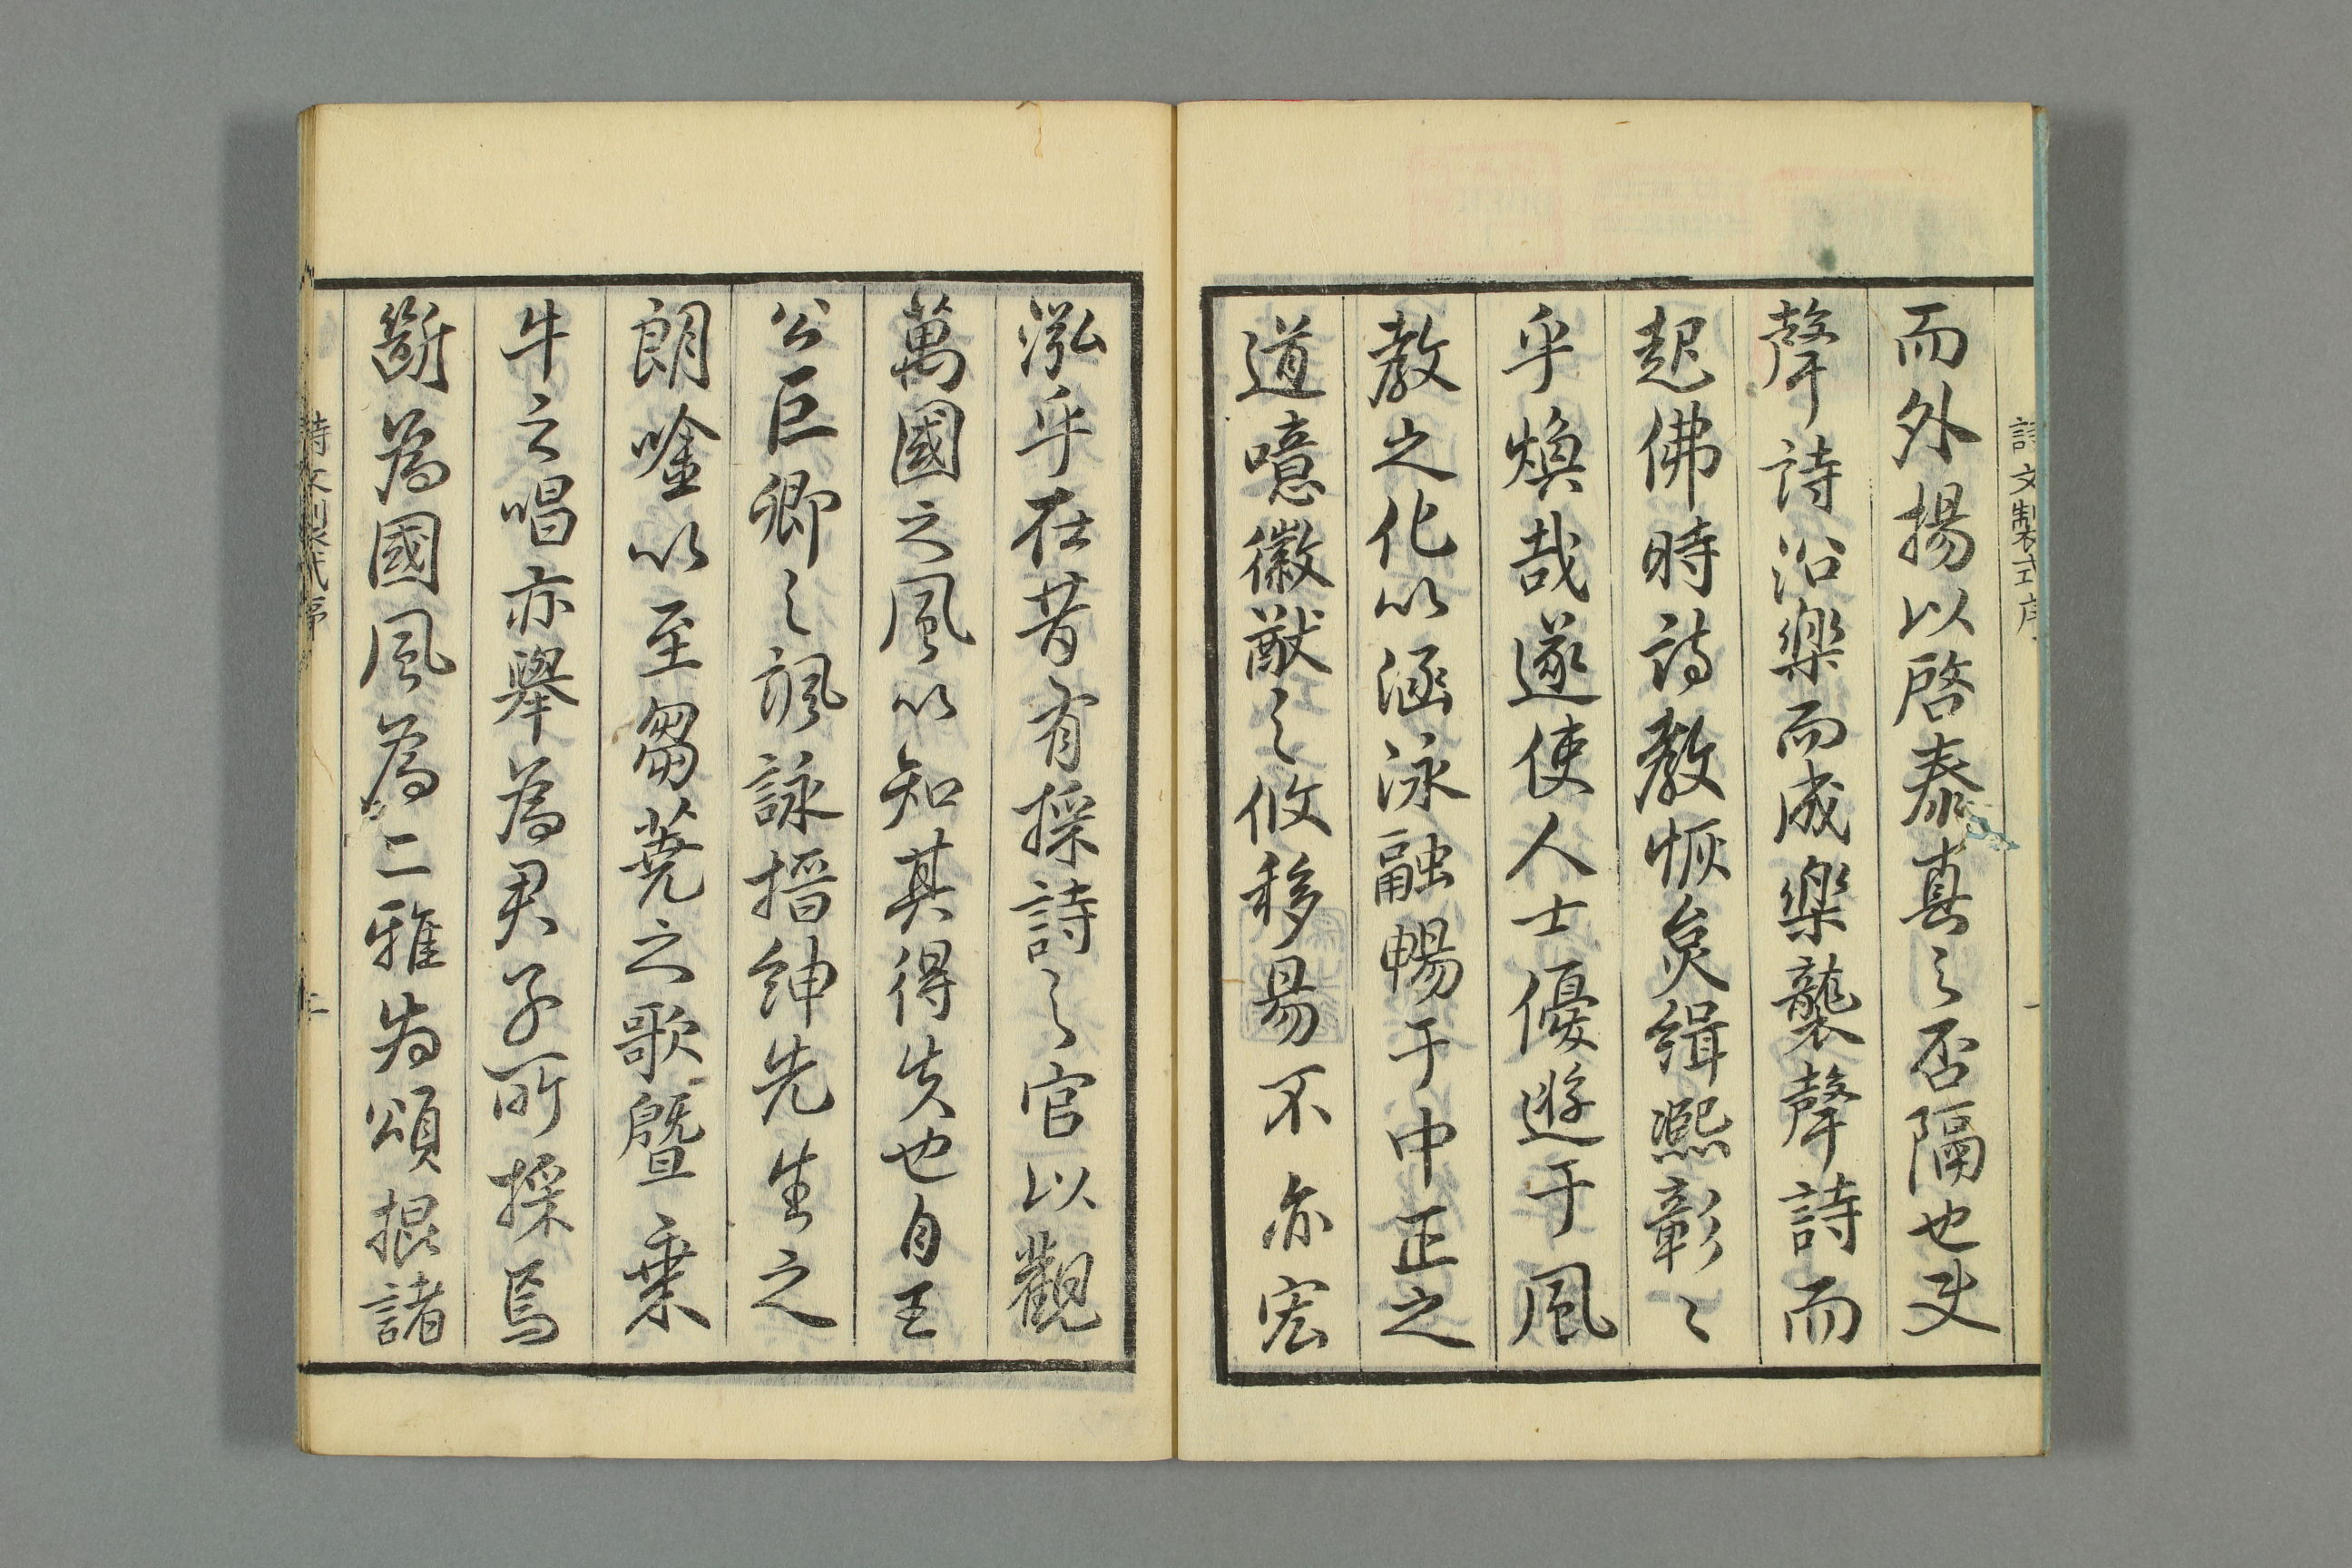 詩文製式序
一
而外揚以啓泰真之否隔也夫
聲詩沿楽而成楽襲聲詩而
起佛時詩教恢炱緝熙彰〻
乎煥哉遂使人士優遊于風
教之化以涵泳融暢于中正之
道噫徽猷之攸移易不亦宏
泓乎在昔有採詩之官以觀
萬國之風以知其得失也自王
公巨卿之諷詠搢紳先生之
朗唫以至芻蕘之歌曁乗
牛之唱亦舉為君子所採焉
斮為國風為二雅為頌掍諸
詩文製式序
二